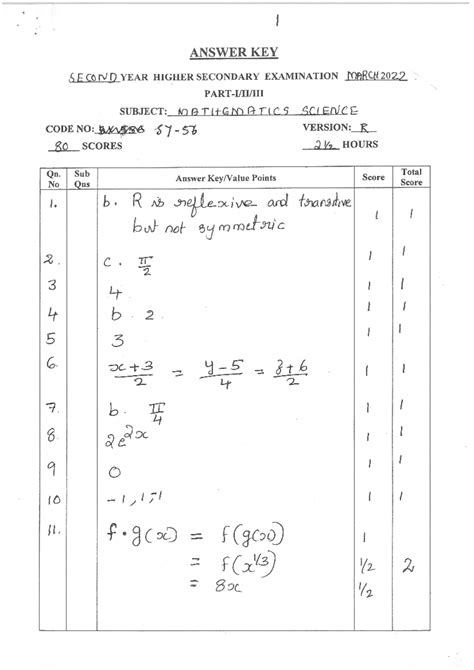 1
ANSWER KEY
SECOND YEAR HIGHER SECONDARY EXAMINATION MARCH 2022
PART-I/II/III
SUBJECT: MATHEMATICS SCIENCE
CODE NO: 57-56 VERSION: R
80 SCORES 2½ HOURS
Qn. No Sub Qns Answer Key/Value Points Score Total Score
1. b. R is reflexive and transitive
but not symmetric 1 1
2. c. π/2 1 1
3 4 1 1
4 b 2 1 1
5 3 1 1
6. x+3/2 = y-5/4 = z+6/2 1 1
7. b. π/4 1 1
8. 2e^2x 1 1
9 0 1 1
10 -1, 1, -1 1 1
11. f∘g(x) = f(g(x)) 1
= f(x^1/3) ½ 2
= 8x ½